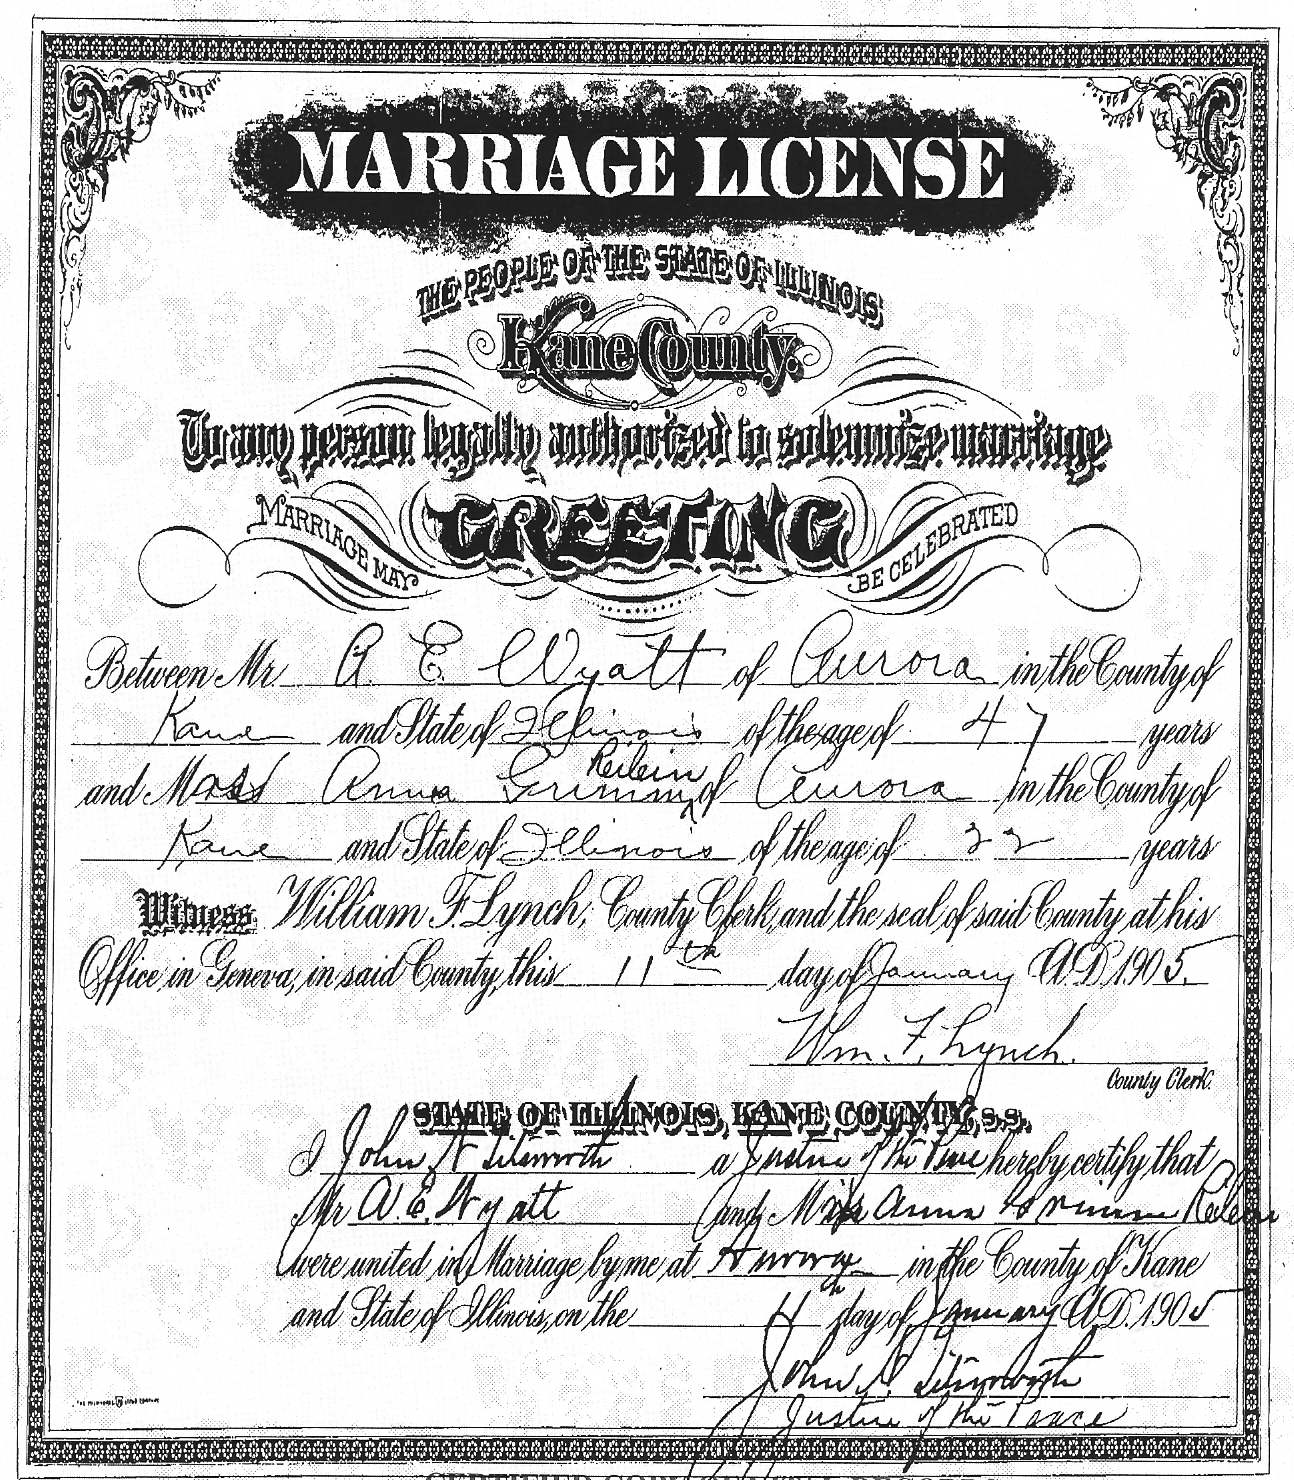 MARRIAGE LICENSE
THE PEOPLE OF THE STATE OF ILLINOIS
Kane County.
To any person legally authorized to solemnize marriage
GREETING
MARRIAGE MAY BE CELEBRATED
Between Mr A. E. Wyatt of Aurora in the County of
Kane and State of Illinois of the age of 47 years
Reilein
and M Anna Grimm of Aurora in the County of
Kane and State of Illinois of the age of years
Witness William F. Lynch, County Clerk, and the seal of said County at his
Office in Geneva, in said County, this 11th day of January A.D. 1905.
Wm. F. Lynch.
County Clerk.
STATE OF ILLINOIS, KANE COUNTY, s.s.
I John a Justice of the Peace hereby certify that
Mr A. E. Wyatt and M Anna Grimm Reilein
were united in Marriage by me at Aurora in the County of Kane
and State of Illinois, on the 11th day of January A.D. 1905
John
Justice of the Peace